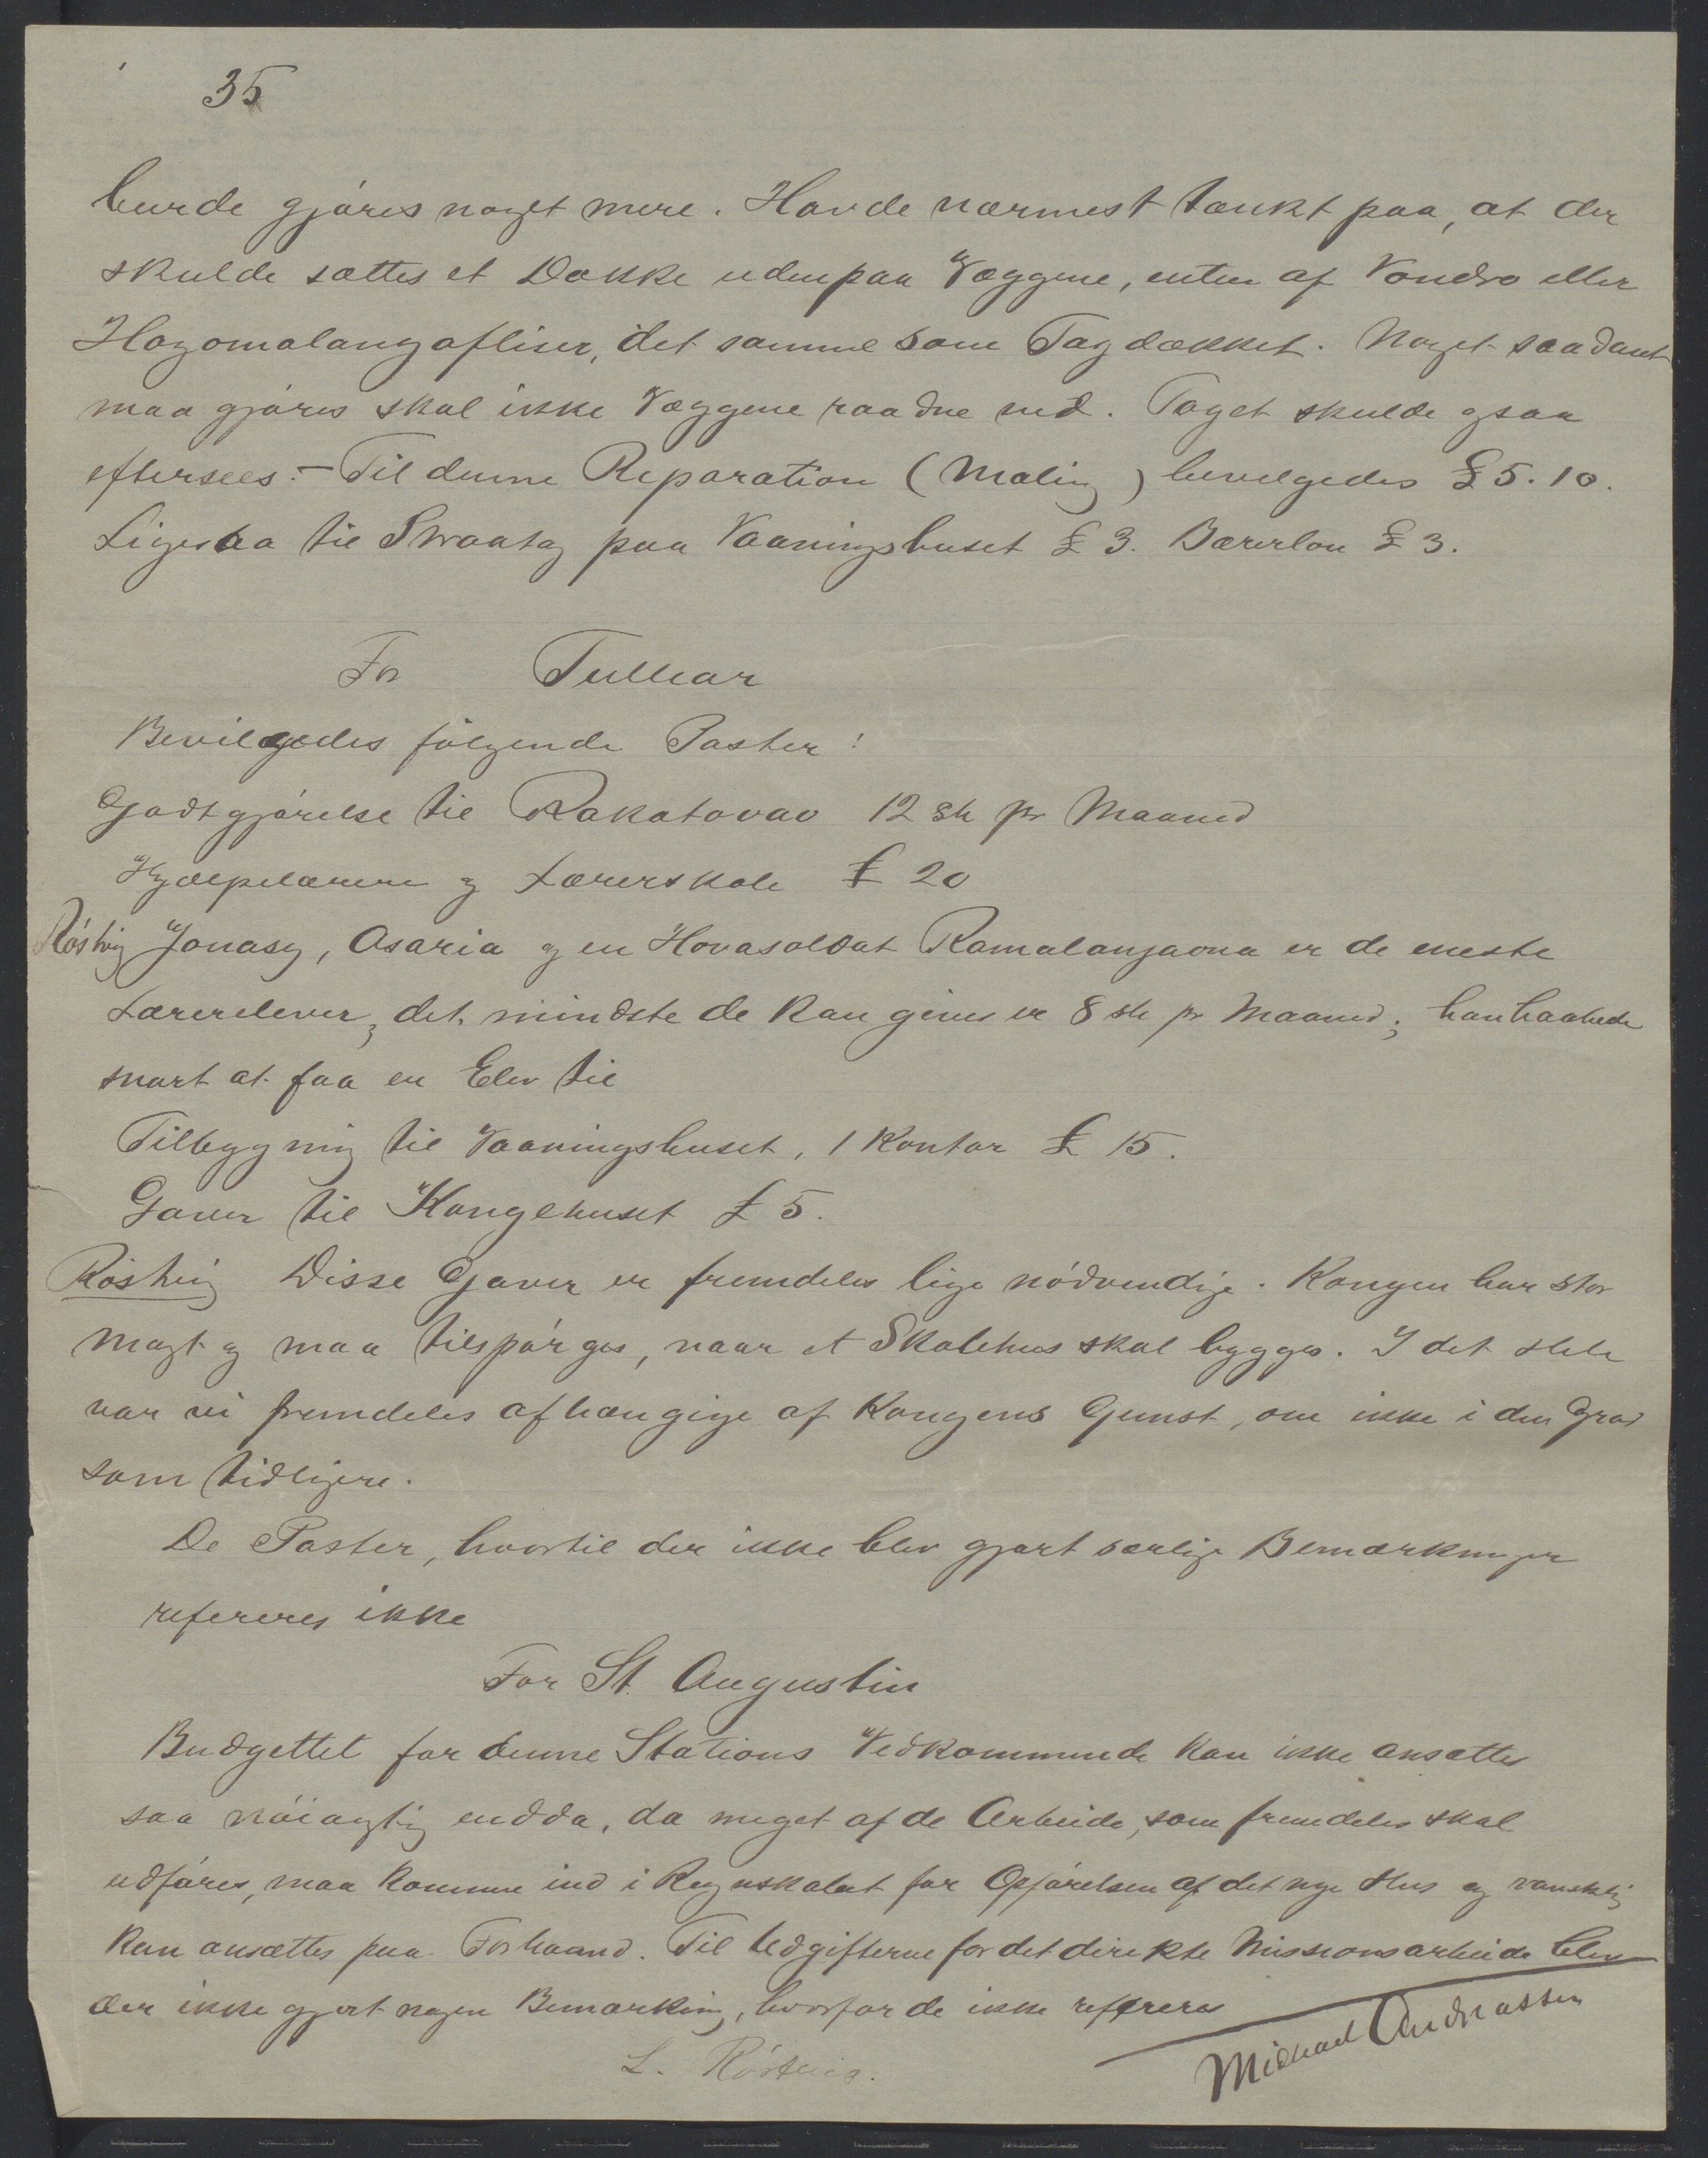 35
burde gjøres noget mere. Havde nærmest tænkt paa, at der
skulde sættes et Dække udenpaa Væggene, enten af Vondro eller
Hazomalangafliser, det samme som Tagdækket. Noget saadant
maa gjøres skal ikke Væggene raadne ned. Taget skulde ogsaa
eftersees. – Til denne Reparation (Maling) bevilgedes £ 5.10.
Ligesaa til Straatag paa Vaaningshuset £ 3. Bærerløn £ 3.
For Tullear
Bevilgedes følgende Poster:
Godtgjørelse til Rakatovao 12 sh pr Maaned
Hjælpelærere og Lærerskole £ 20
Røstvig Jonasy, Asaria og en Hovasoldat Ramalanjaona er de eneste
Lærerelever, det mindste de kan gives er 8 sh pr Maaned; han haabede
snart at faa en Elev til
Tilbygning til Vaaningshuset, 1 Kontor £ 15.
Gaver til Kongehuset £ 5.
Røstvig Disse Gaver er fremdeles lige nødvendige. Kongen har stor
Magt og maa tilspørges, naar et Skolehus skal bygges. I det Hele
var vi fremdeles afhængige af Kongens Gunst, om ikke i den Grad
som tidligere.
De Poster, hvortil der ikke blev gjort særlige Bemærkninger
refereres ikke
For St. Augustin
Budgettet for denne Stations Vedkommende kan ikke ansættes
saa nøiagtig endda, da meget af de Arbeide, som fremdeles skal
udføres, maa komme ind i Regnskabet for Opførelsen af det nye Hus og vanskelig
kan ansættes paa Forhaand. Til Udgifterne for det direkte Missionsarbeide blev
der ikke gjort nogen Bemærkning, hvorfor de ikke refereres
Michael Andreassen
L. Røstvig.